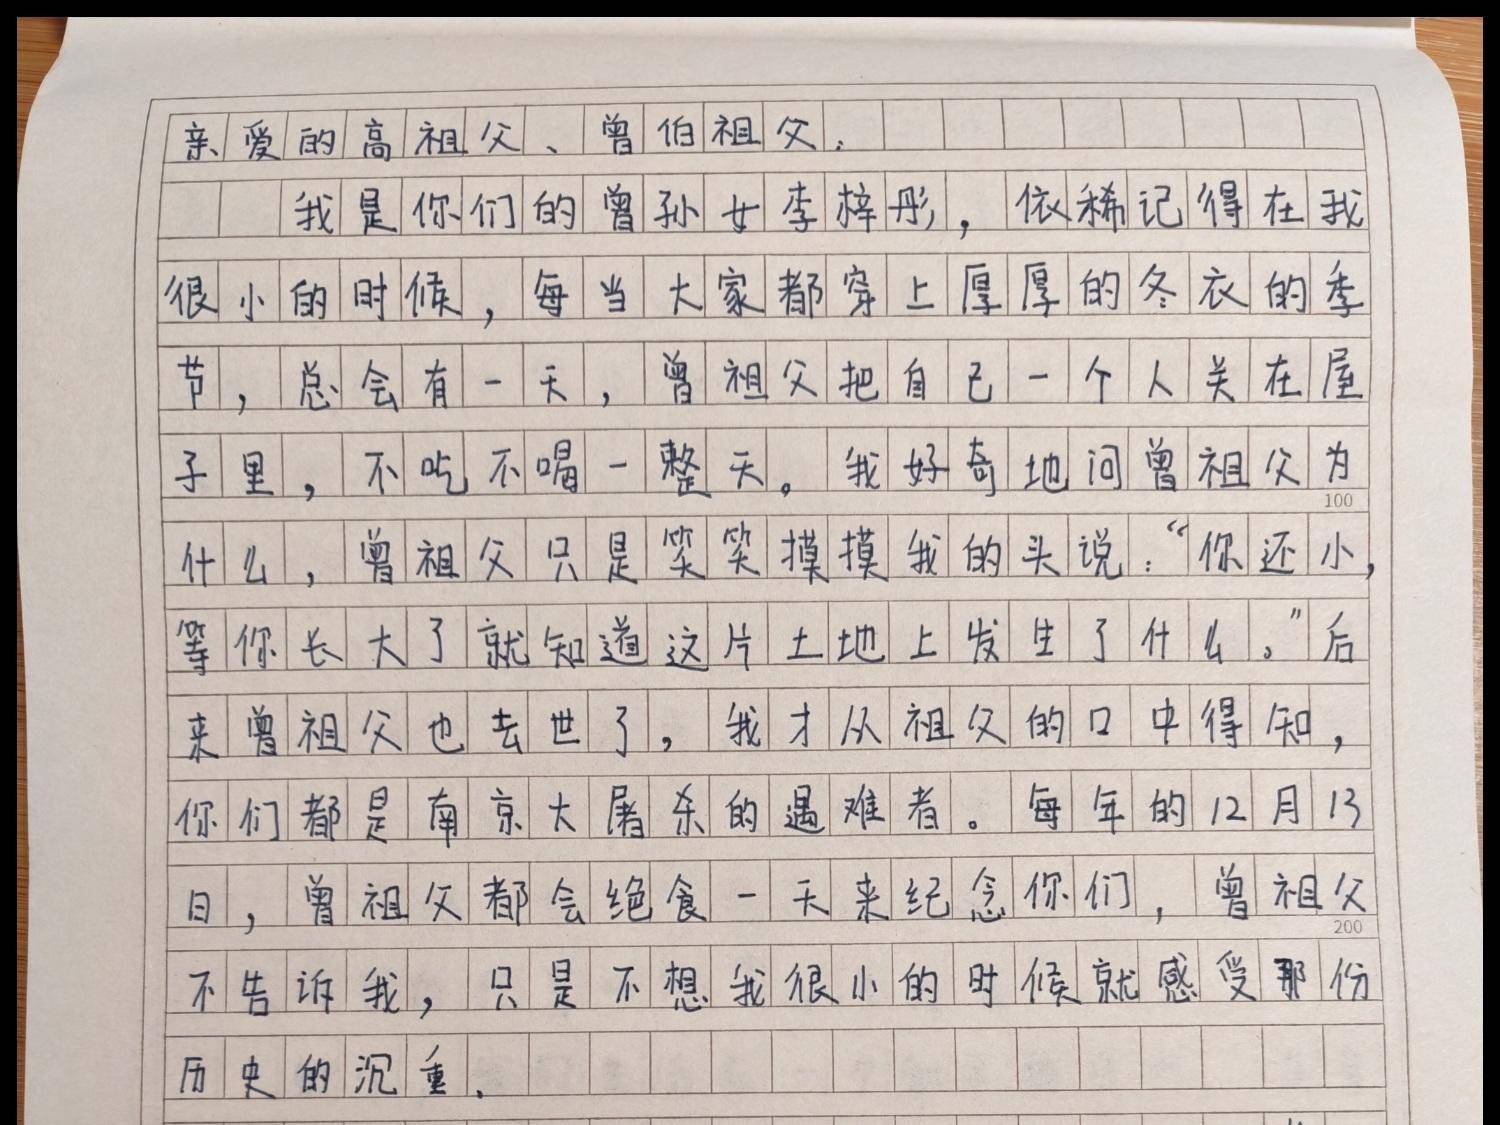 亲爱的高祖父、曾伯祖父:
我是你们的曾孙女李梓彤,依稀记得在我
很小的时候,每当大家都穿上厚厚的冬衣的季
节,总会有一天,曾祖父把自己一个人关在屋
子里,不吃不喝一整天。我好奇地问曾祖父为
100
什么,曾祖父只是笑笑摸摸我的头说:“你还小,
等你长大了就知道这片土地上发生了什么。”后
来曾祖父也去世了,我才从祖父的口中得知,
你们都是南京大屠杀的遇难者。每年的12月13
日,曾祖父都会绝食一天来纪念你们,曾祖父
200
不告诉我,只是不想我很小的时候就感受那份
历史的沉重.